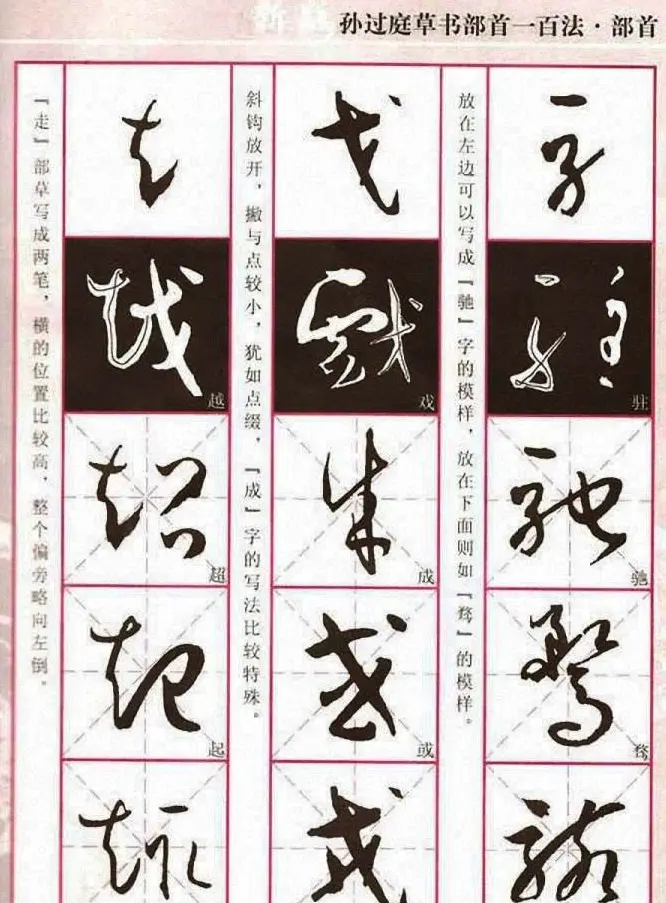 孙过庭草书部首一百法·部首
放在左边可以写成『驰』字的模样，放在下面则如『骛』的模样。
驻
驰
骛
斜钩放开，撇与点较小，犹如点缀，『成』字的写法比较特殊。
戏
成
或
『走』部草写成两笔，横的位置比较高，整个偏旁略向左倒。
越
超
起